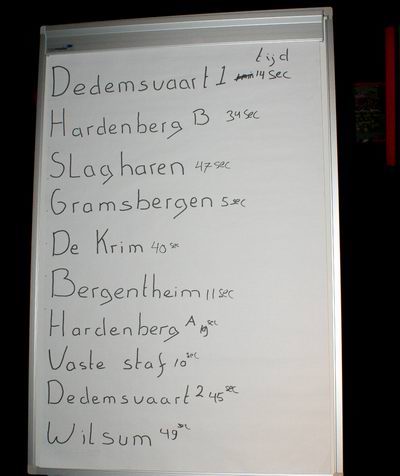 tijd
Dedemsvaart 1 14 sec
Hardenberg B 34 sec
SLagharen 47 sec
Gramsbergen 5 sec
De Krim 40 sec
Bergentheim 11 sec
Hardenberg A sec
Vaste staf 10 sec
Dedemsvaart 2 45 sec
Wilsum 49 sec